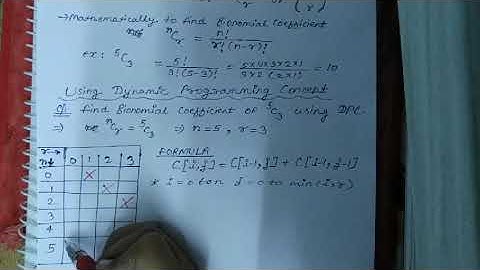 (r)
→ Mathematically to find Binomial coefficient
nCr = n! / r!(n-r)!
ex: 5C3 = 5! / 3!(5-3)! = 5x4x3x2x1 / 3x2(2x1) = 10
Using Dynamic Programming Concept
Q) find Bionomial coefficient of 5C3 using DPC.
⇒ nCr = 5C3 ⇒ n=5, r=3
r→ 0 1 2 3
n↓
0 X
1 X
2 X
3
4
5
FORMULA
C[i,j] = C[i-1, j] + C[i-1, j-1]
* i = 0 to n j = 0 to min(i,r)